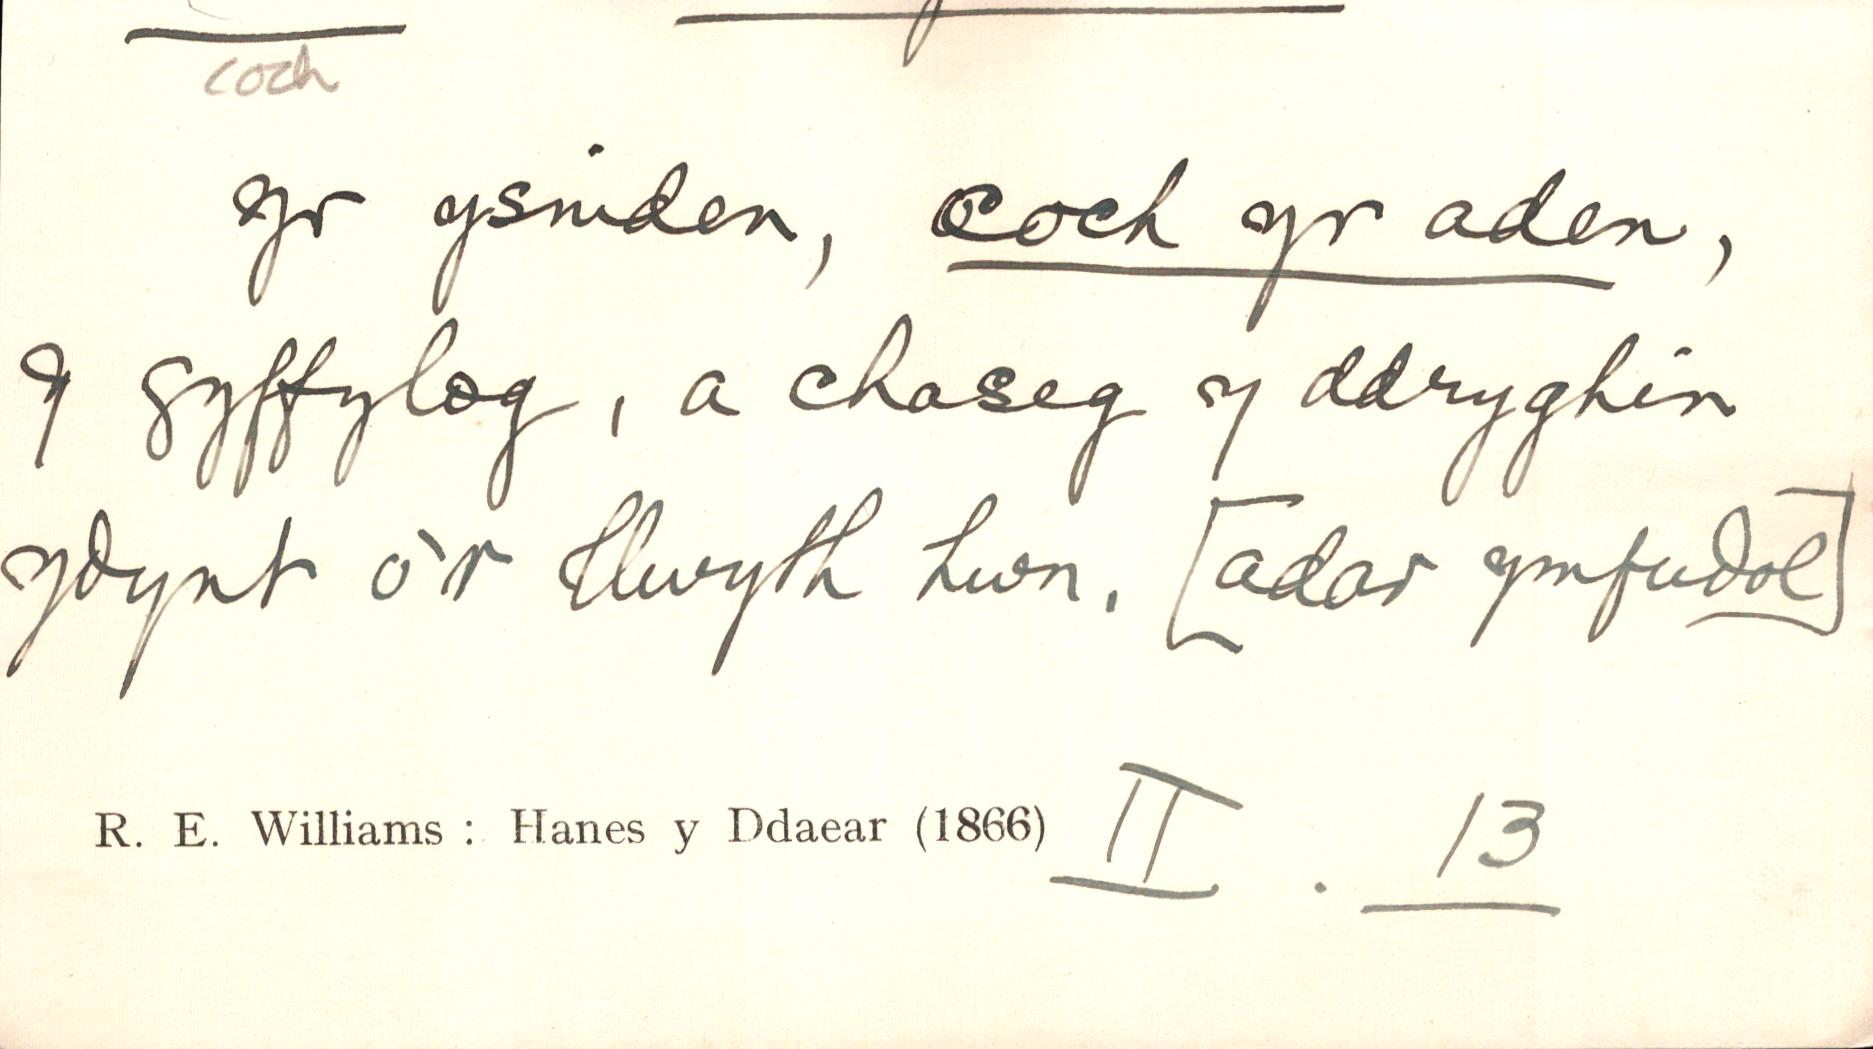 coch
yr ysniden, coch yr aden,
y gyffylog, a chaseg y ddryghin
ydynt o'r llwyth hwn. [adar ymfudol]
R. E. Williams : Hanes y Ddaear (1866) II . 13